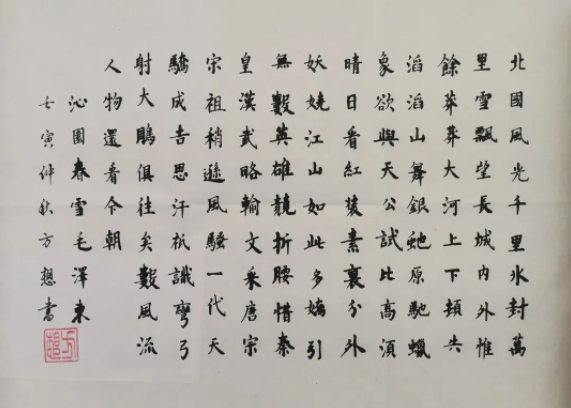 北國風光千里氷封萬
里雪飄望長城內外惟
餘莽莽大河上下頓失
滔滔山舞銀虵原馳蠟
象欲與天公試比高須
晴日看紅裝素裹分外
妖嬈江山如此多嬌引
無數英雄競折腰惜秦
皇漢武略輸文采唐宗
宋祖稍遜風騷一代天
驕成吉思汗祇識彎弓
射大鵰俱往矣數風流
人物還看今朝
沁園春雪毛澤東
壬寅仲秋方想書